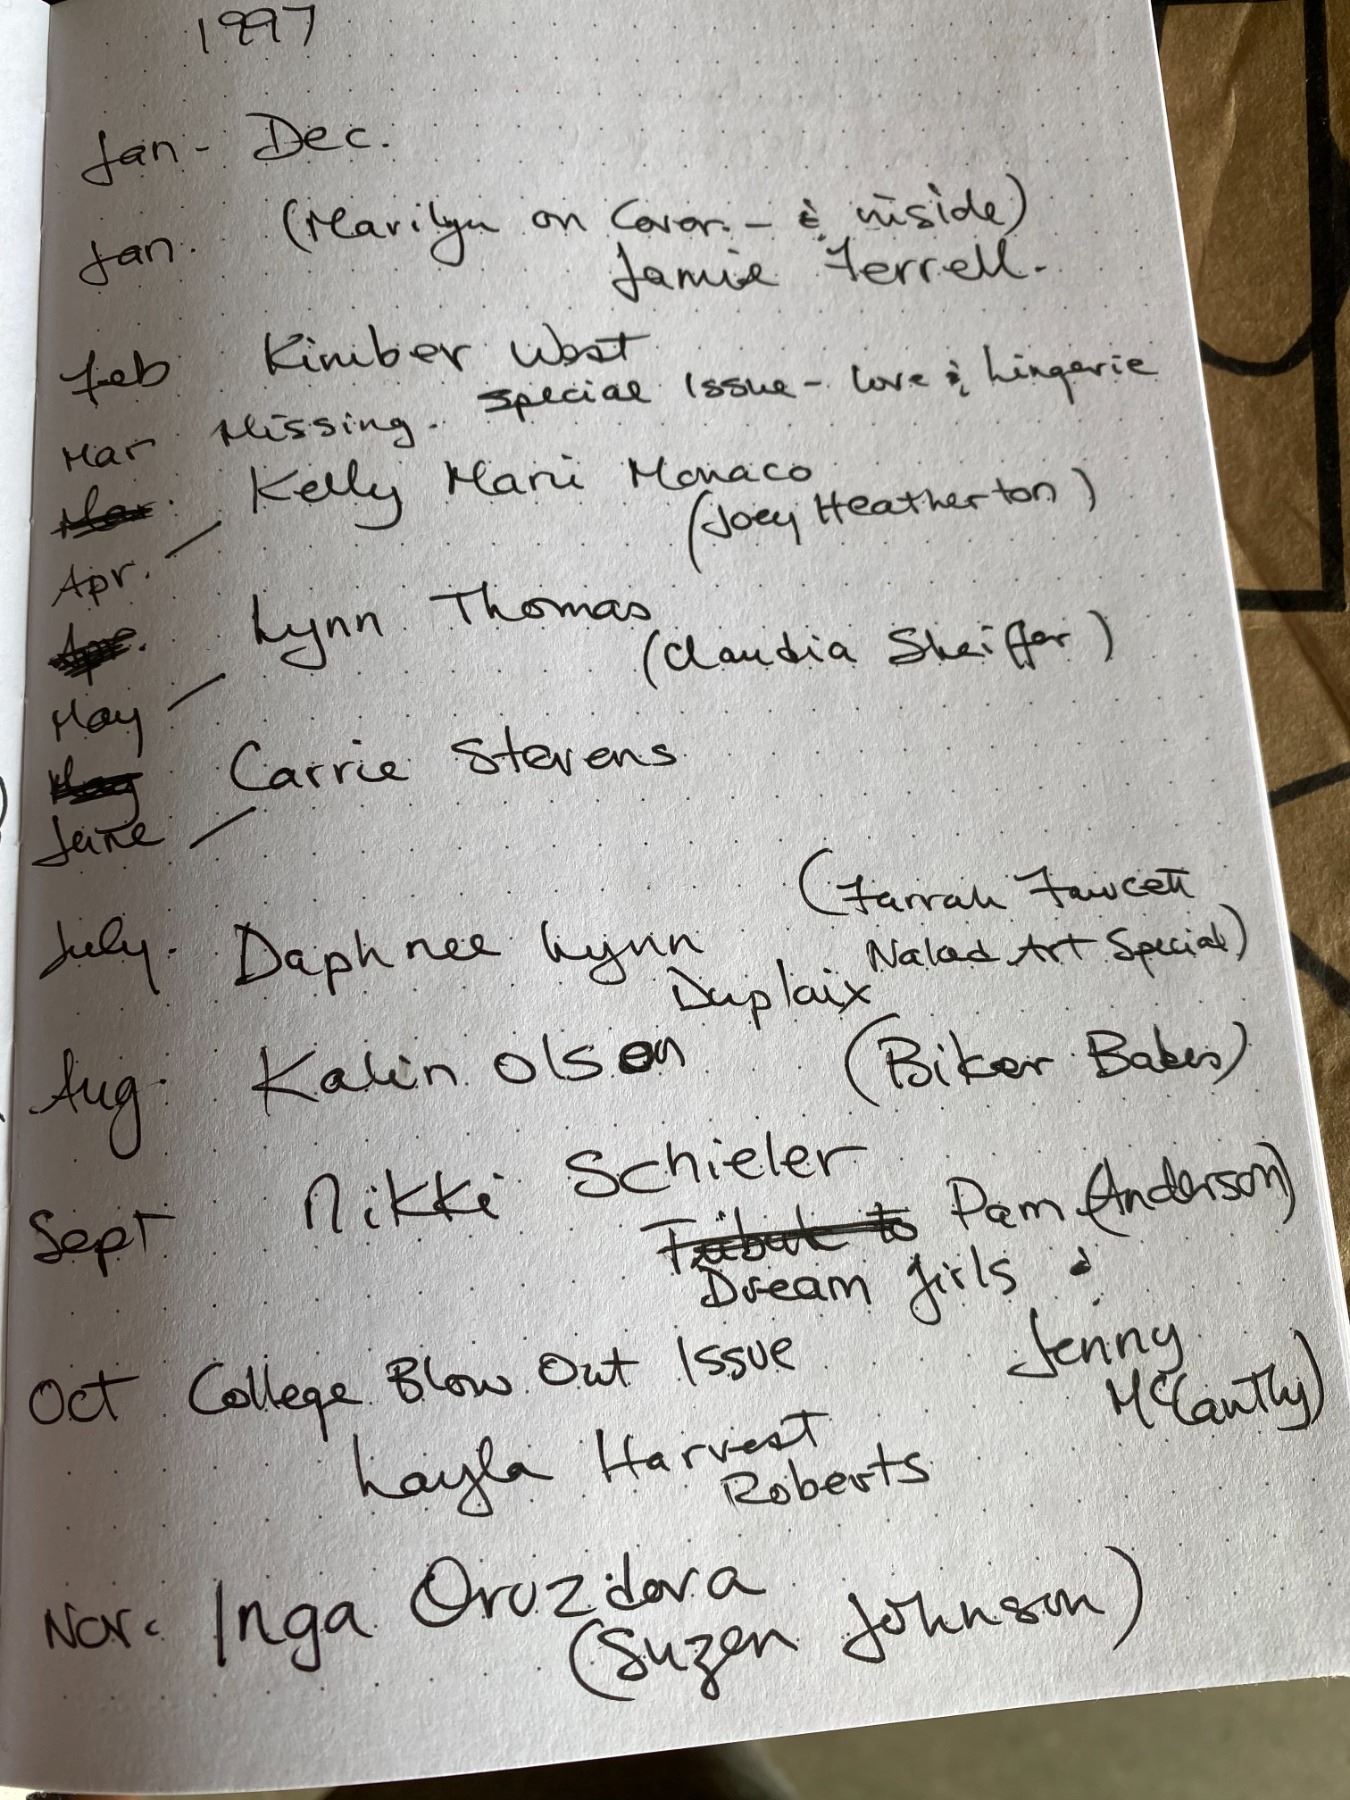 1997
Jan - Dec.
Jan. (Marilyn on Cover. - & inside)
Jamie Ferrell.
Feb Kimber West
Mar Missing. Special Issue - Love & Lingerie
Mar. Kelly Mari Monaco
(Joey Heatherton)
Apr. —
Apr. Lynn Thomas
(Claudia Sheiffer)
May —
May Carrie Stevens
June —
(Farrah Fawcett
July. Daphnee Lynn Naked Art Special)
Duplaix
Aug. Kalin Olson (Biker Babes)
Sept Nikki Schieler
Tribute to Pam (Anderson)
Dream Girls &
Oct College Blow Out Issue Jenny
McCanthy)
Layla Harvest
Roberts
Nov. Inga Drozdova
(Suzen Johnson)